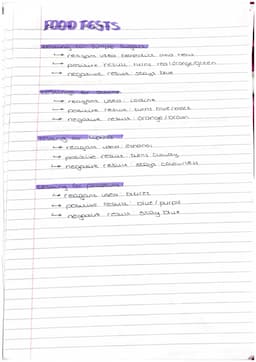 FOOD TESTS
Testing for simple sugars
→ reagent used: benedict and heat
→ positive result: turns red/orange/green
→ negative result: stays blue
Testing for
→ reagent used: iodine
→ positive result: turns blue/black
→ negative result: orange/brown
Testing for lipids
→ reagent used: ethanol
→ positive result: turns cloudy
→ negative result: stays colourless
Testing for proteins
→ reagent used: biuret
→ positive result: blue/purple
→ negative result: stay blue